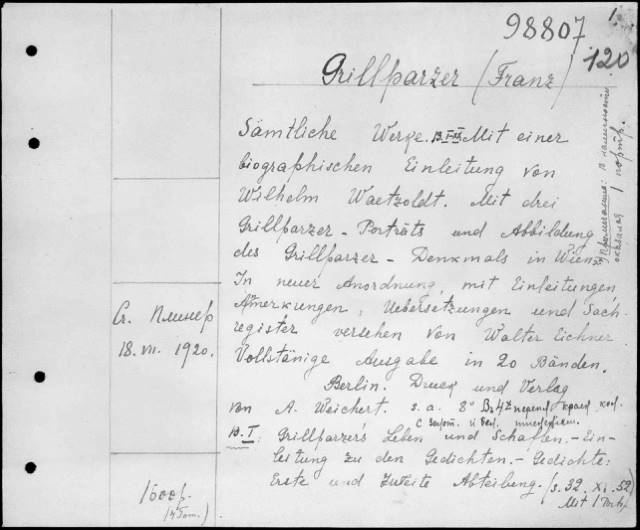 98807
1.
120
Grillparzer (Franz)
Sämtliche Werke. B. I-III Mit einer
biographischen Einleitung von
Wilhelm Waetzoldt. Mit drei
Grillparzer - Porträts und Abbildung
des Grillparzer - Denkmals in Wien
In neuer Anordnung, mit Einleitungen
Anmerkungen, Uebersetzungen und Sach-
register versehen von Walter Eichner
Vollstänige Ausgabe in 20 Bänden.
Berlin. Druck und Verlag
von A. Weichert. s. a. 8°
B. I: Grillparzer's Leben und Schaffen. - Ein-
leitung zu den Gedichten. - Gedichte:
Erste und zweite Abteilung. (s. 32. XI. 52)
Mit 1
Примечание: в наличности
1 портр.
18. VII. 1920.
1600 р.
(4 Tom.)